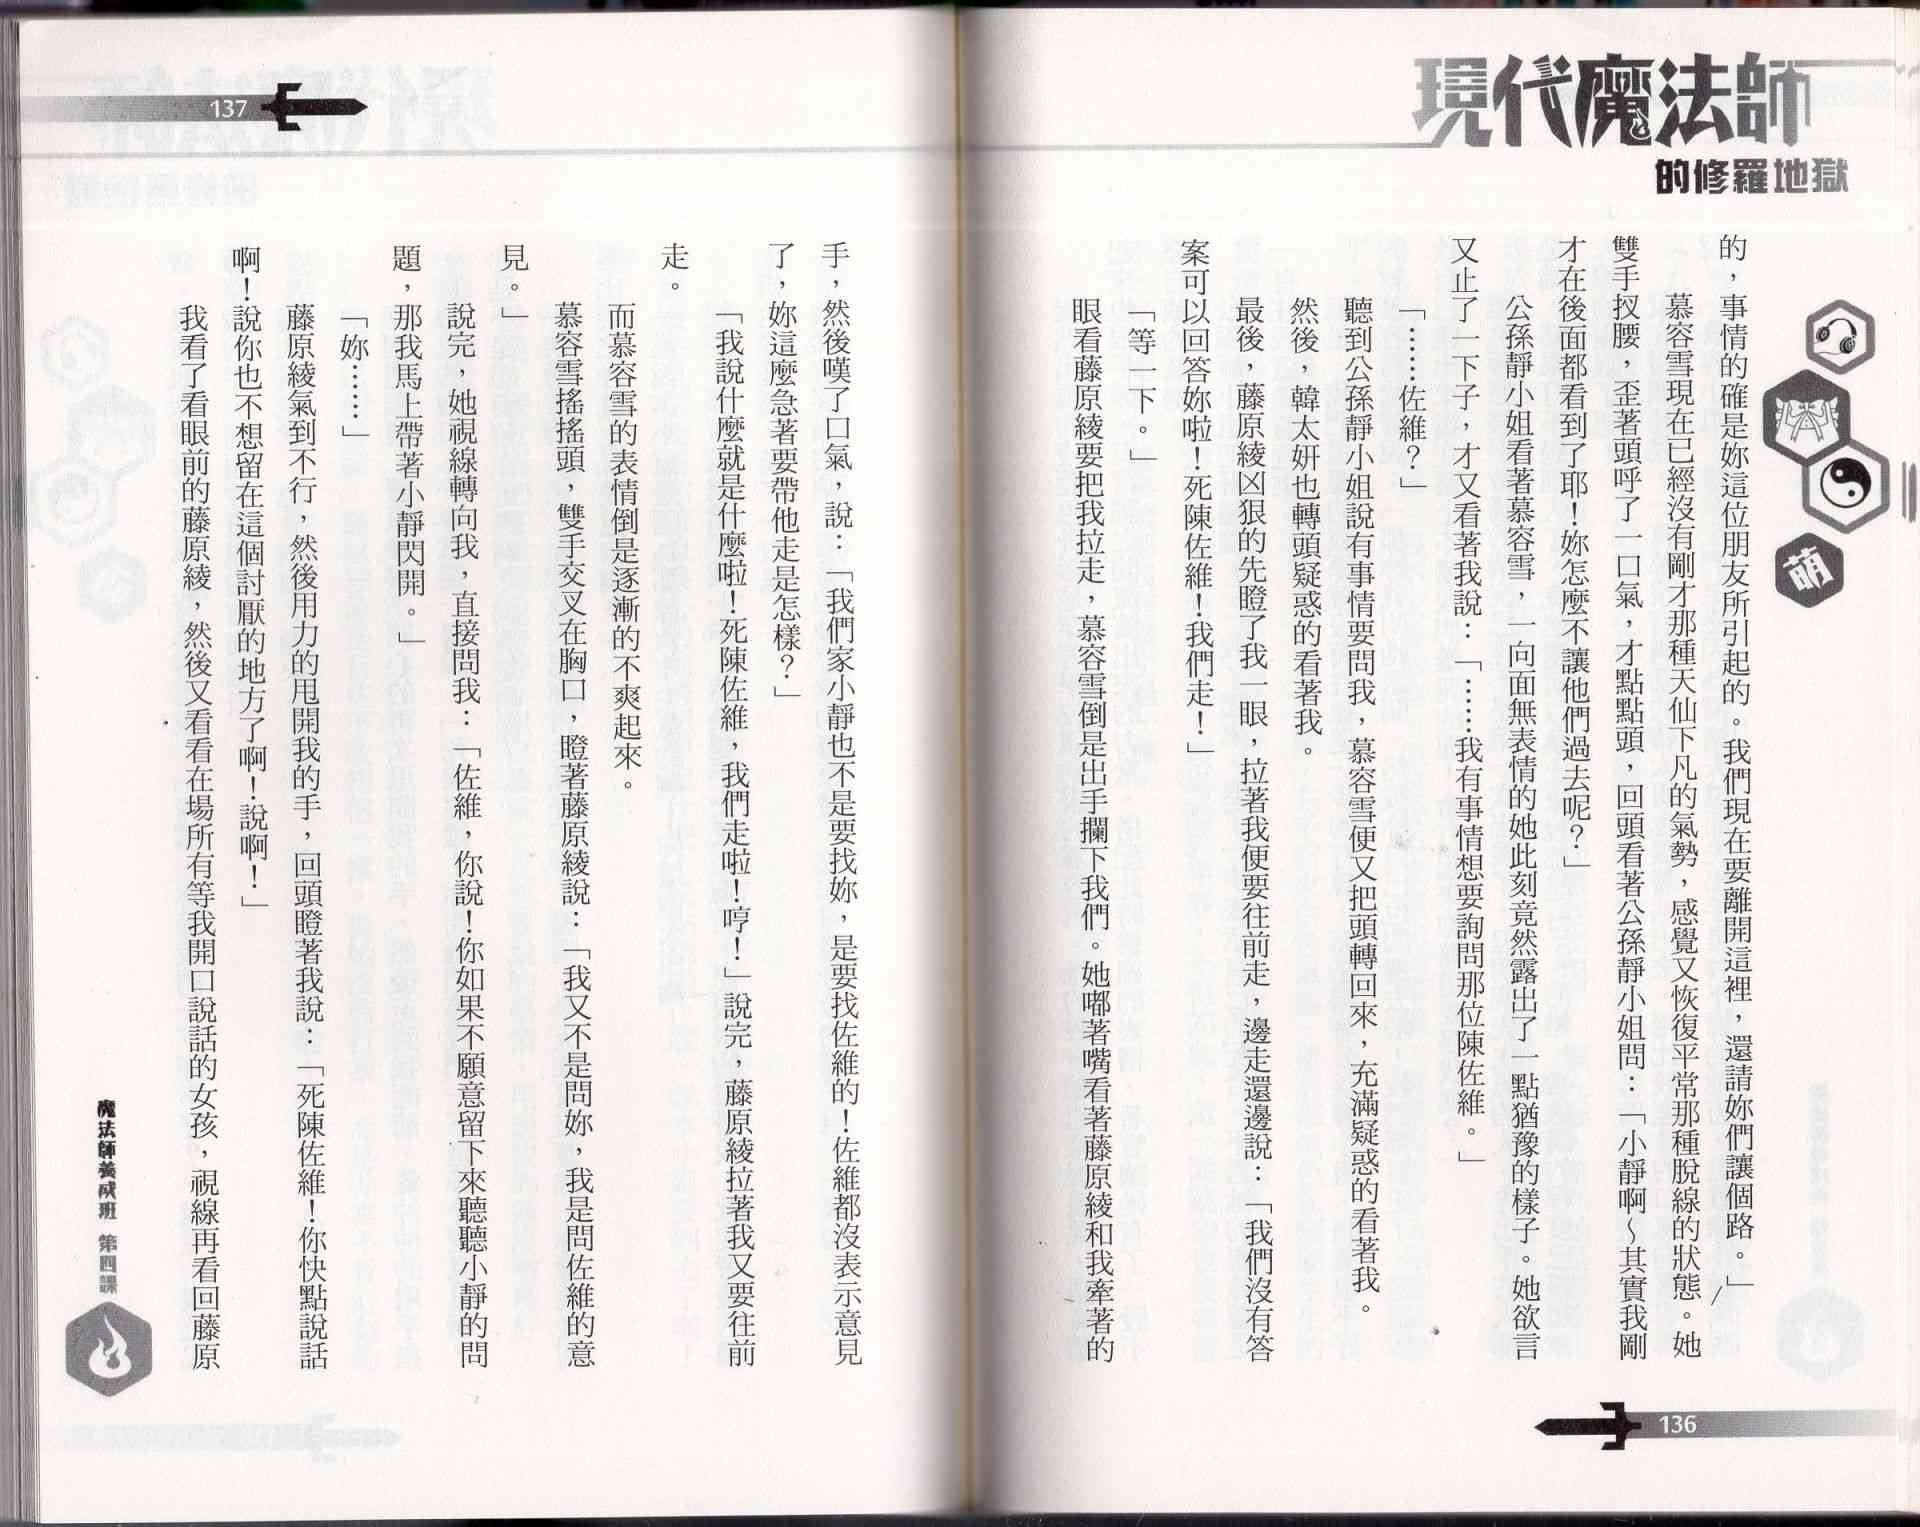 現代魔法師
的修羅地獄
萌
的，事情的確是妳這位朋友所引起的。我們現在要離開這裡，還請妳們讓個路。」
慕容雪現在已經沒有剛才那種天仙下凡的氣勢，感覺又恢復平常那種脫線的狀態。她
雙手扠腰，歪著頭呼了一口氣，才點點頭，回頭看著公孫靜小姐問：「小靜啊～其實我剛
才在後面都看到了耶！妳怎麼不讓他們過去呢？」
公孫靜小姐看著慕容雪，一向面無表情的她此刻竟然露出了一點猶豫的樣子。她欲言
又止了一下子，才又看著我說：「……我有事情想要詢問那位陳佐維。」
「……佐維？」
聽到公孫靜小姐說有事情要問我，慕容雪便又把頭轉回來，充滿疑惑的看著我。
然後，韓太妍也轉頭疑惑的看著我。
最後，藤原綾凶狠的先瞪了我一眼，拉著我便要往前走，邊走還邊說：「我們沒有答
案可以回答妳啦！死陳佐維！我們走！」
「等一下。」
眼看藤原綾要把我拉走，慕容雪倒是出手攔下我們。她嘟著嘴看著藤原綾和我牽著的
136
137
手，然後嘆了口氣，說：「我們家小靜也不是要找妳，是要找佐維的！佐維都沒表示意見
了，妳這麼急著要帶他走是怎樣？」
「我說什麼就是什麼啦！死陳佐維，我們走啦！哼！」說完，藤原綾拉著我又要往前
走。
而慕容雪的表情倒是逐漸的不爽起來。
慕容雪搖搖頭，雙手交叉在胸口，瞪著藤原綾說：「我又不是問妳，我是問佐維的意
見。」
說完，她視線轉向我，直接問我：「佐維，你說！你如果不願意留下來聽聽小靜的問
題，那我馬上帶著小靜閃開。」
「妳……」
藤原綾氣到不行，然後用力的甩開我的手，回頭瞪著我說：「死陳佐維！你快點說話
啊！說你也不想留在這個討厭的地方了啊！說啊！」
我看了看眼前的藤原綾，然後又看看在場所有等我開口說話的女孩，視線再看回藤原
魔法師養成班 第四課